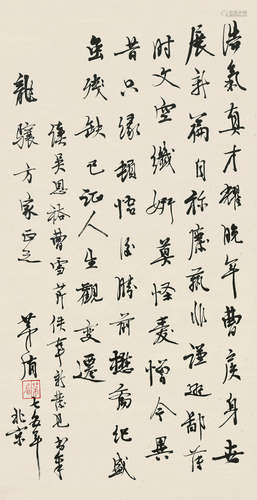 浩氣真才耀晚年曹侯身世
展新篇自称廢藝非謹遜鄙薄
時文空纖妍莫怪愛憎今異
昔只緣頓悟後勝前懋齋紀盛
虽殘缺已证人生觀變遷
讀吳恩裕曹雪芹佚著新發見書奉
龍驤方家正之
茅盾
七五年
北京